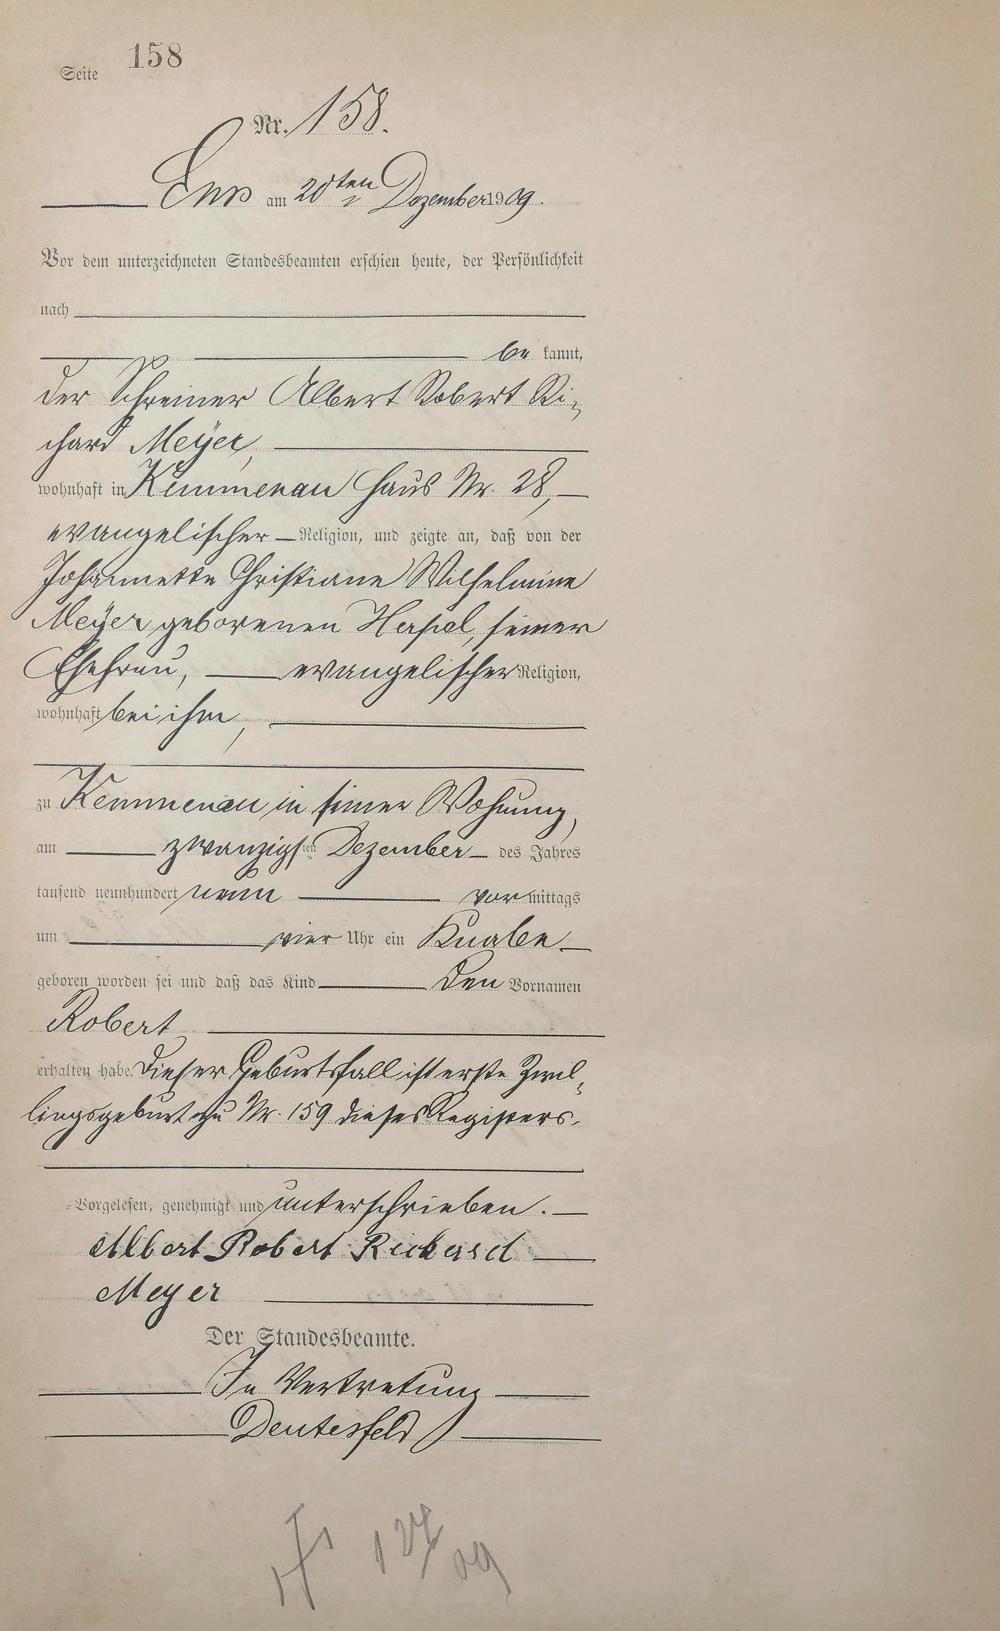 Seite 158
Nr. 158.
Ems am 20ten Dezember 1909.
Vor dem unterzeichneten Standesbeamten erschien heute, der Persönlichkeit
nach
be kannt,
der Schreiner Albert Robert Ri-
chard Meyer,
wohnhaft in Kemmenau Haus Nr. 28,
evangelischer Religion, und zeigte an, daß von der
Johannette Christiane Wilhelmine
Meyer geborenen Herpel, seiner
Ehefrau, evangelischer Religion,
wohnhaft bei ihm,
zu Kemmenau in seiner Wohnung,
am zwanzigsten Dezember des Jahres
tausend neunhundert neun vormittags
um vier Uhr ein Knabe
geboren worden sei und daß das Kind den Vornamen
Robert
erhalten habe. Dieser Geburtsfall ist erste Zwil-
lingsgeburt zu Nr. 159 dieses Registers.
Vorgelesen, genehmigt und unterschrieben.
Albert Robert Richard
Meyer
Der Standesbeamte.
In Vertretung